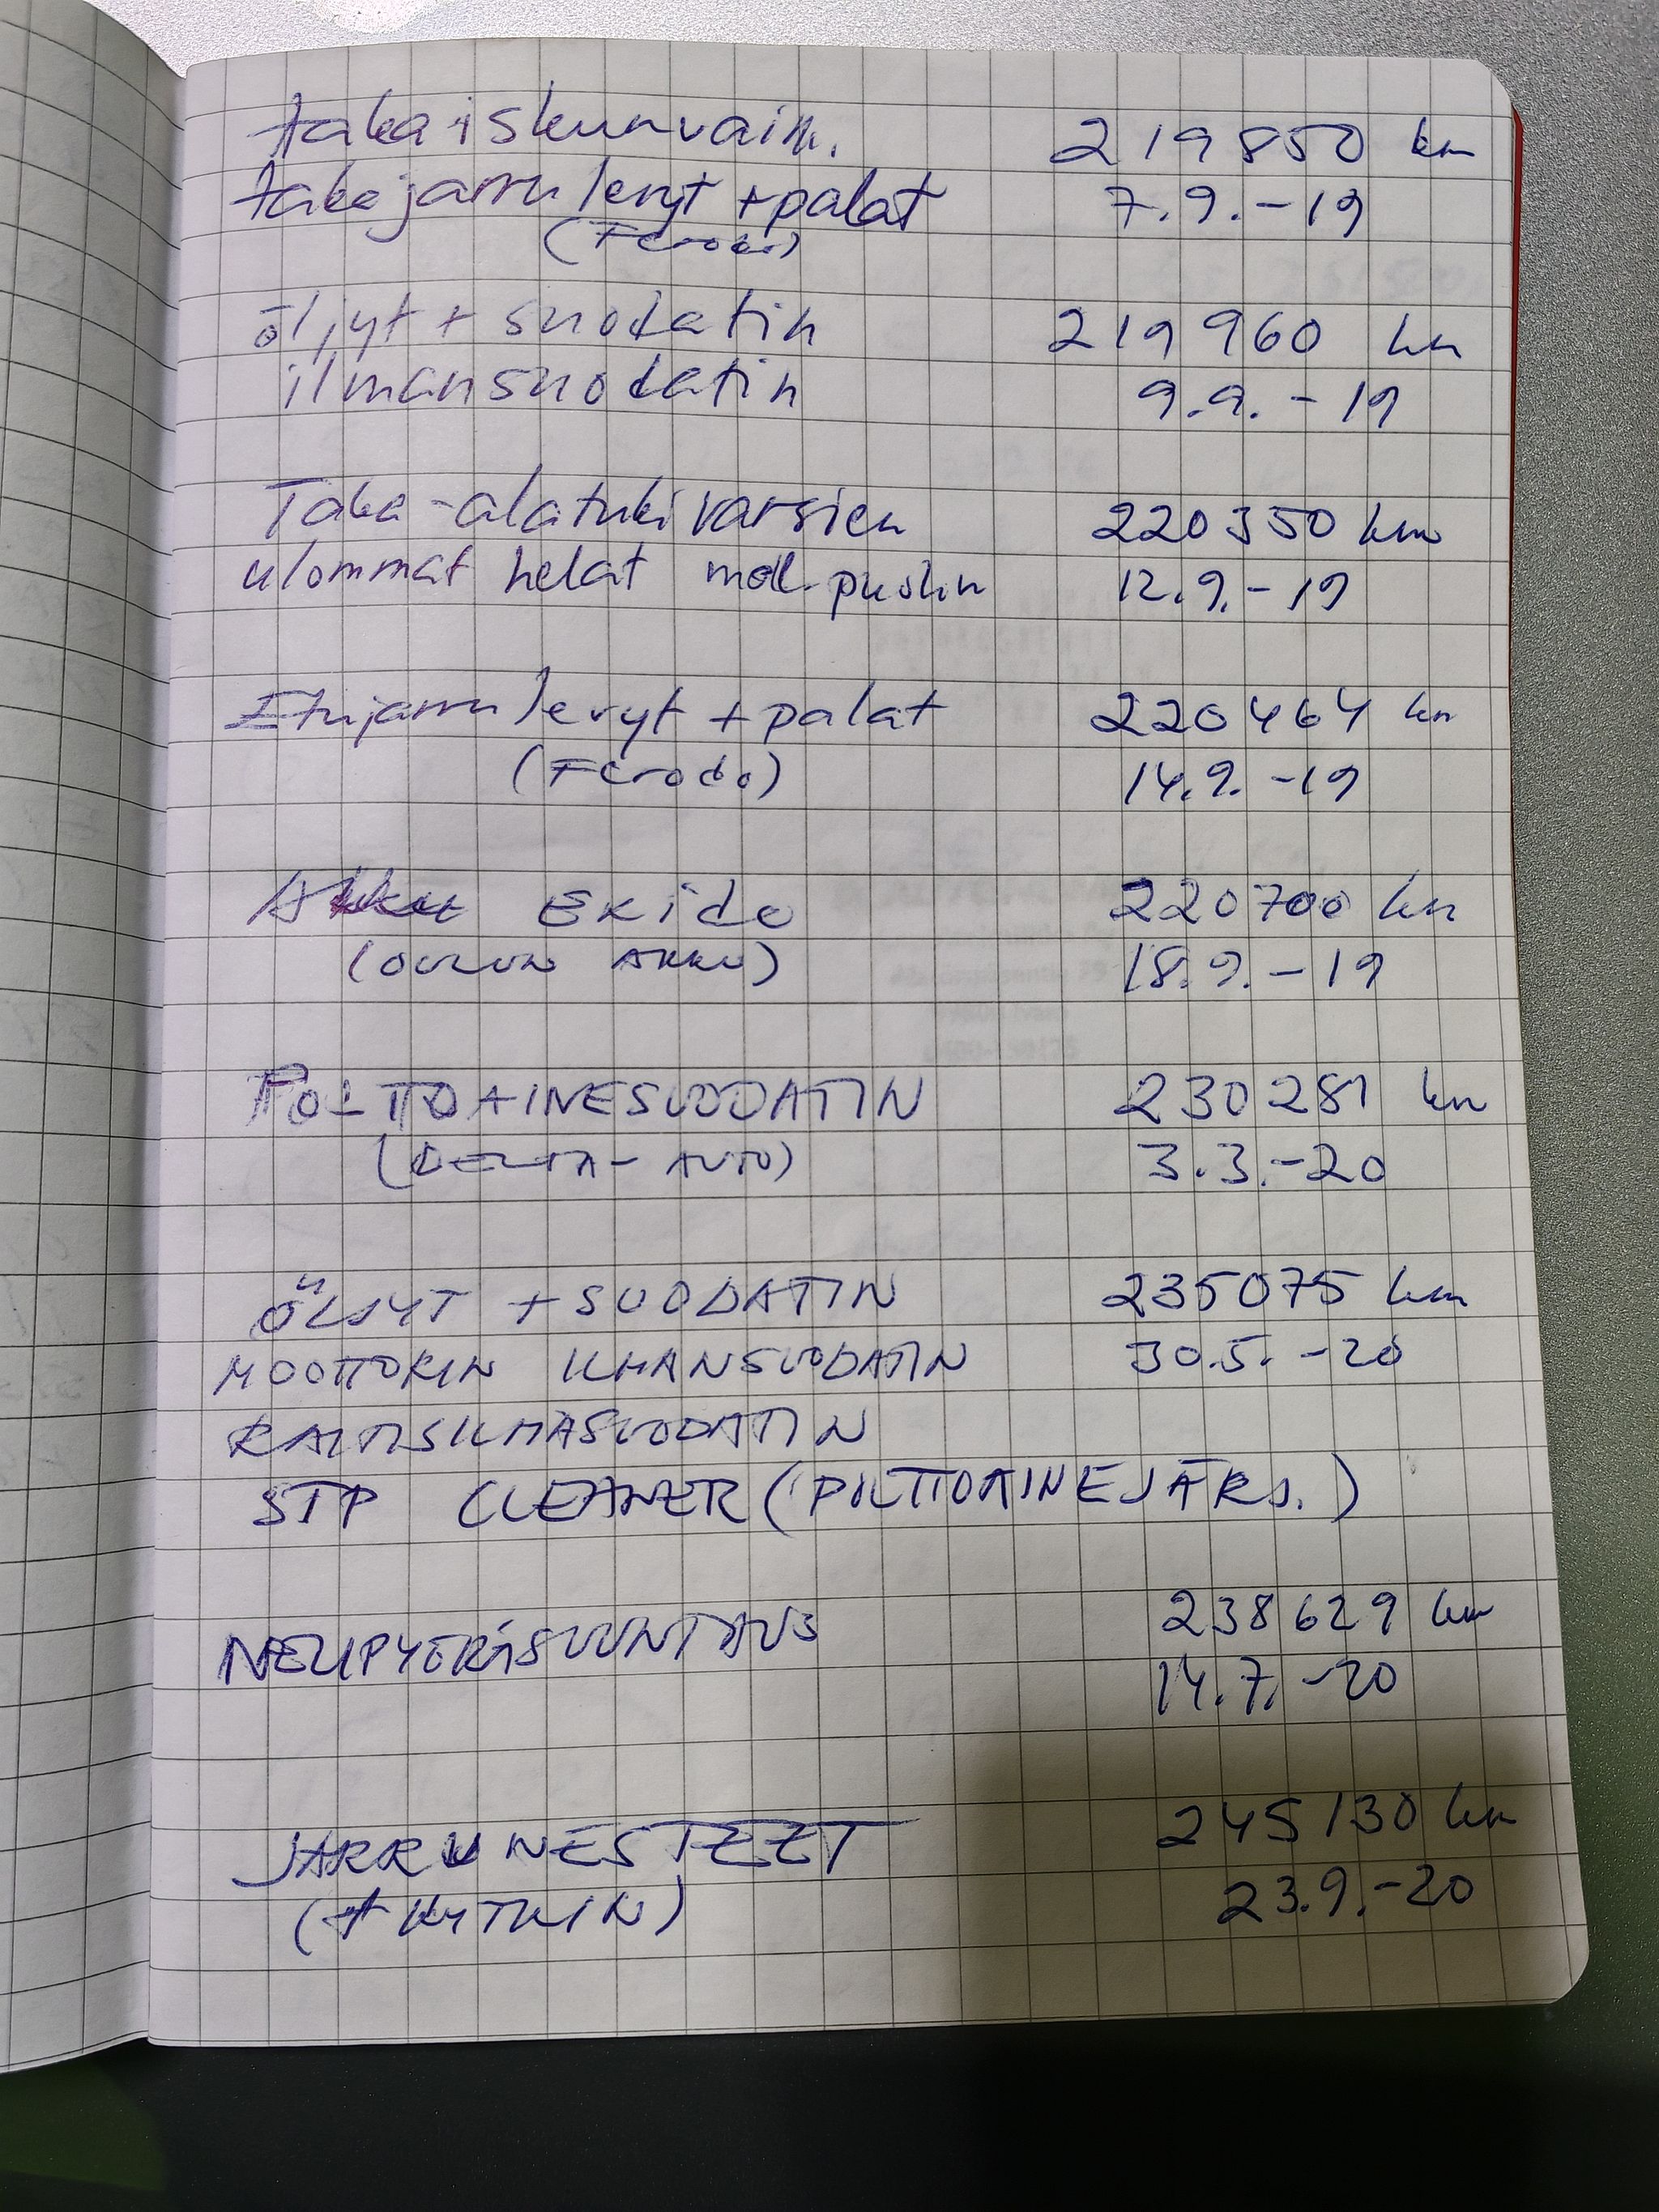 taka iskunvaim. 219850 km
takajarrulevyt + palat 7.9.-19
(Ferodo)
öljyt + suodatin 219960 km
ilmansuodatin 9.9.-19
Taka-alatukivarsien 220350 km
ulommat helat mol. puolin 12.9.-19
Etujarrulevyt + palat 220464 km
(Ferodo) 14.9.-19
Akku Exide 220700 km
(OULUN AKKU) 18.9.-19
POLTTOAINESUODATIN 230281 km
(DELTA-AUTO) 3.3.-20
ÖLJYT + SUODATIN 235075 km
MOOTTORIN ILMANSUODATIN 30.5.-20
RAITISILMASUODATIN
STP CLEANER (POLTTOAINEJÄRJ.)
238629 km
NELIPYÖRÄSUUNTAUS
14.7.-20
245130 km
JARRUNESTEET
23.9.-20
(+ KYTKIN)